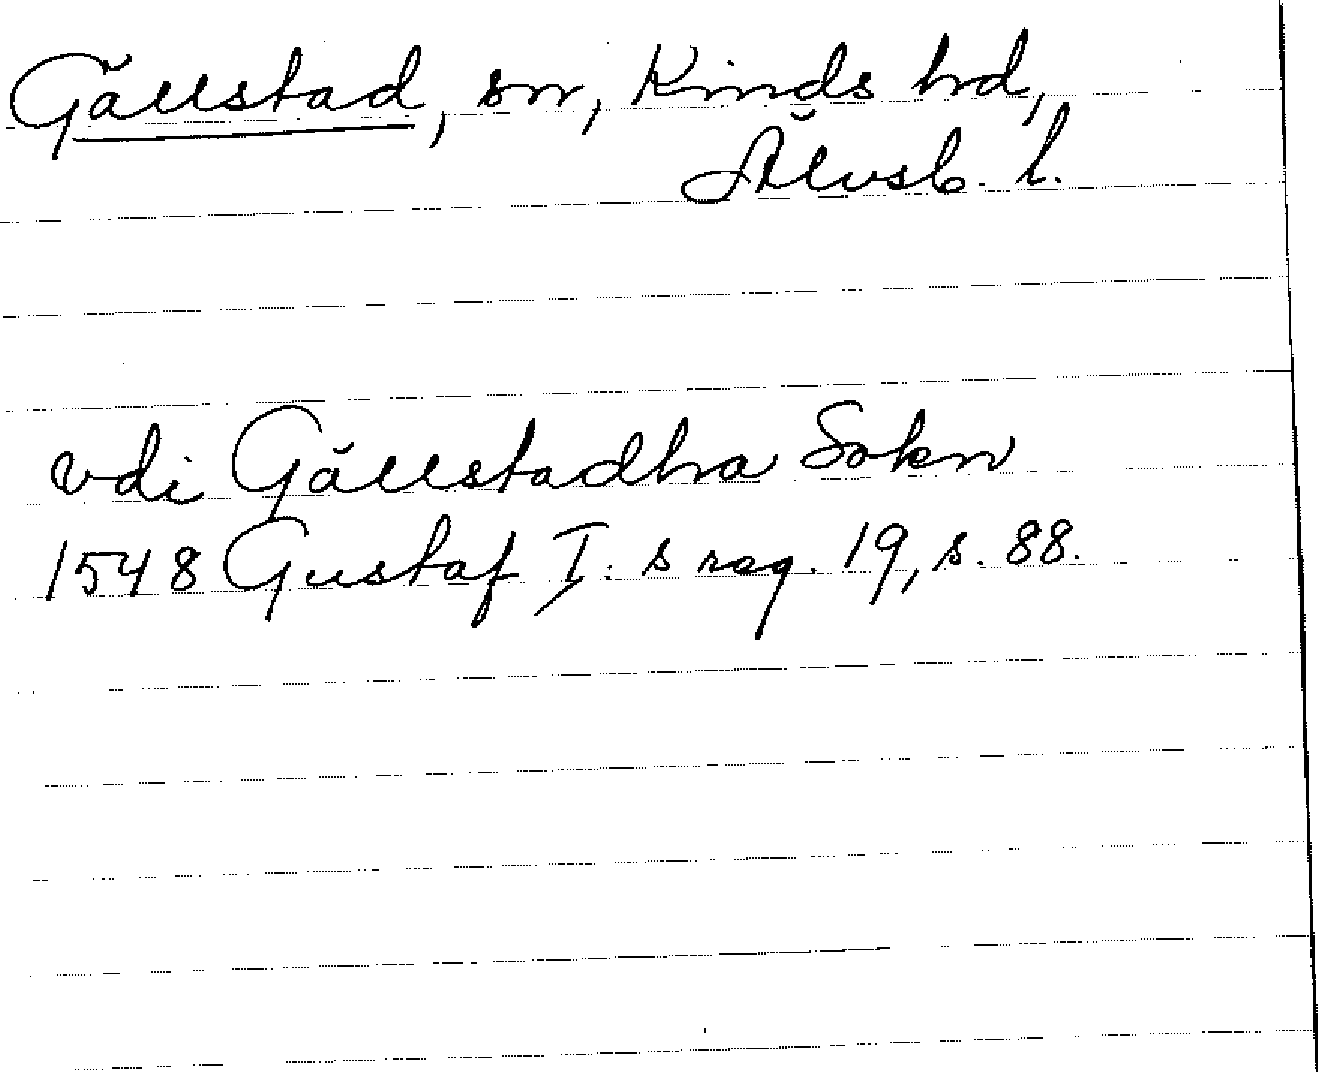 Gällstad, sn, Kinds hd,
Älvsb. l.
vdi Gällstadha Sokn
1548 Gustaf I:s reg. 19, s. 88.